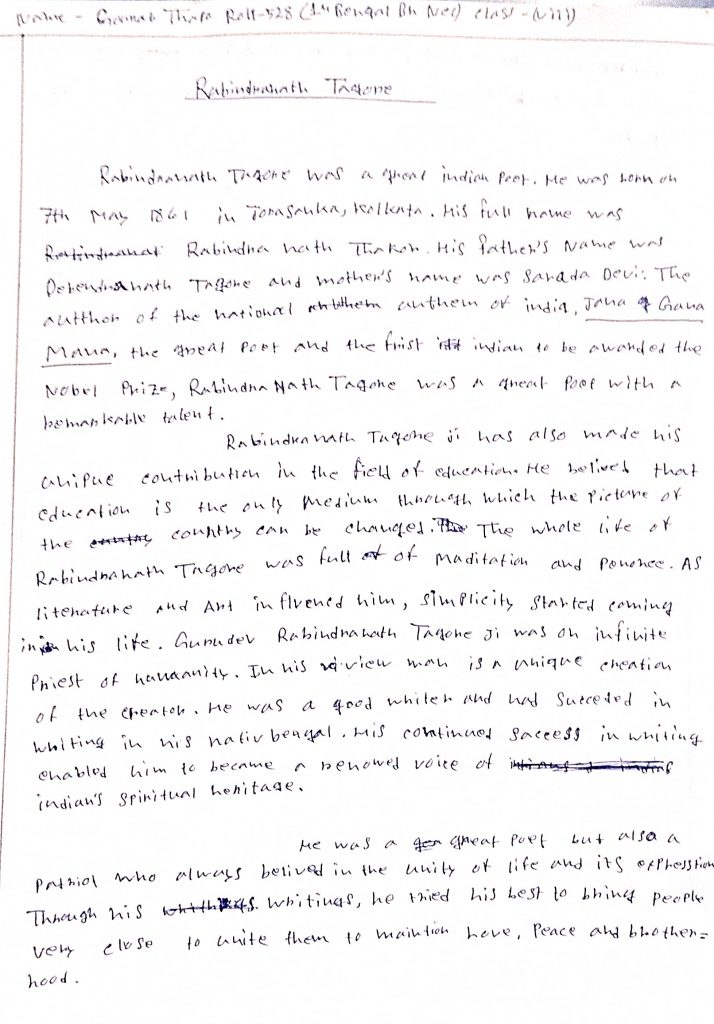 Name - Thapa Roll-528 (1st Bengal Bn Ncc) class-(VIII)
Rabindranath Tagore
Rabindranath Tagore was a great indian Poet. He was born on
7th May 1861 in Jorasanka, Kolkata. His full name was
Rabindra nath Thakor. His father's Name was
Debendranath Tagore and mother's name was Sarada Devi. The
autthor of the national anthem of india, Jana Gana
Mana, the great Poet and the frist indian to be awarded the
Nobel Prize, Rabindra Nath Tagore was a great Poet with a
remarkable talent.
Rabindranath Tagore ji has also made his
unique contribution in the field of education. He belived that
education is the only Medium through which the picture of
the country can be changed. The whole life of
Rabindranath Tagore was full of Maditation and Penence. As
literature and Art inflvened him, simplicity started coming
in his life. Gurudev Rabindranath Tagore ji was on infinite
Priest of humanity. In his view man is a unique creation
of the creator. He was a good writer and had Succeded in
writing in his nativ bengal. His continued saccess in writing
enabled him to became a renowed voice of
indian's spiritual heritage.
He was a great Poet but also a
Patriot who always belived in the unity of life and its expression
Through his writings, he tried his best to bring people
very close to unite them to maintion Love, Peace and brother=
hood.